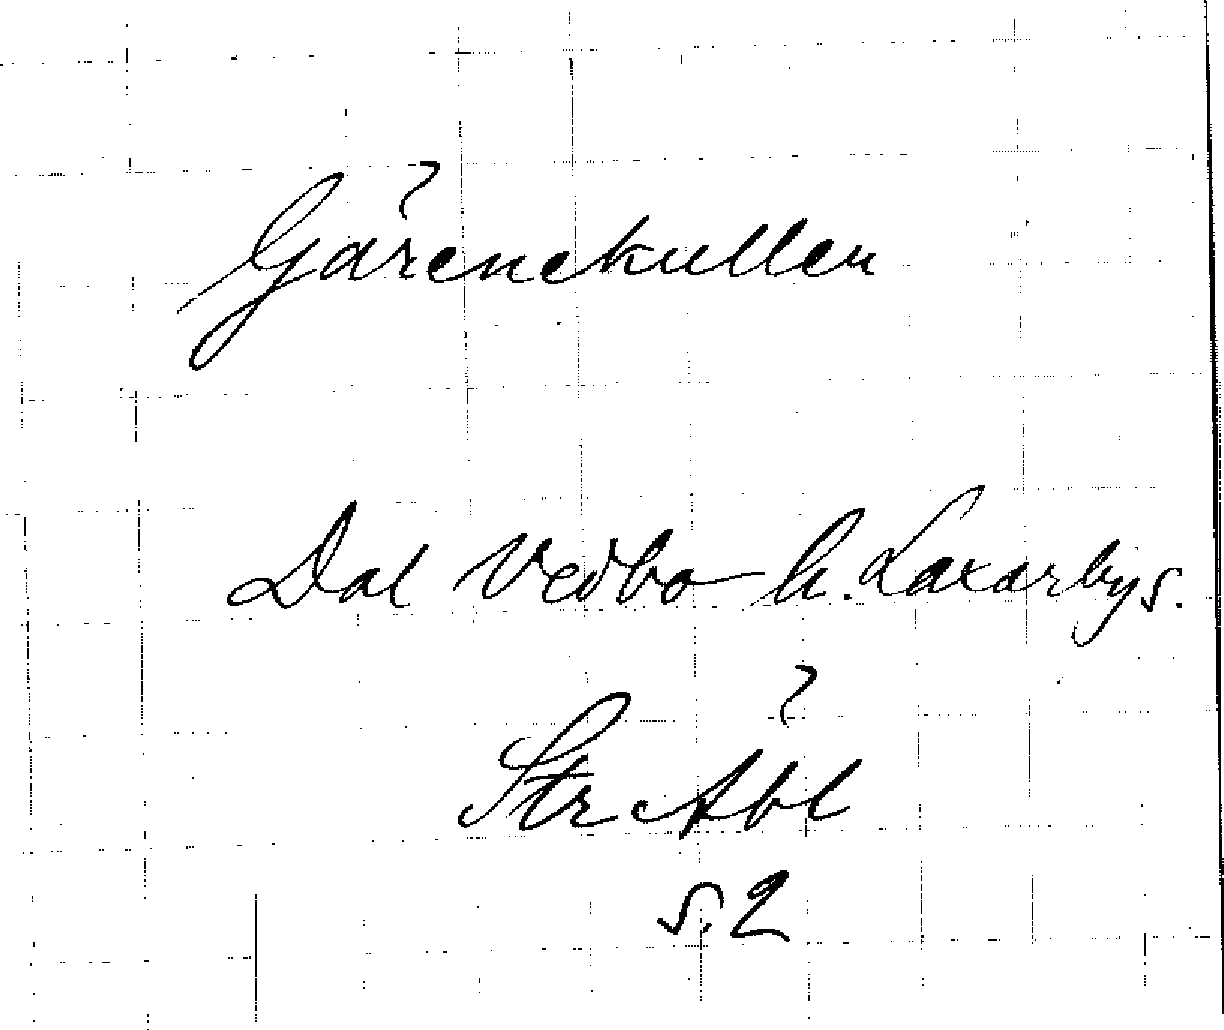 ?
Gärenekullen
Dal Vedbo h. Laxarby s.
?
Str Abl
s. 2